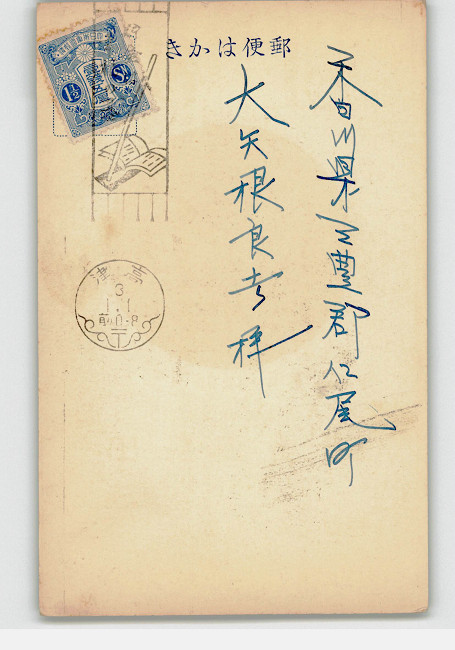 きかは便郵
香川県三豊郡仁尾町
大矢根良吉様
高津
3
1.1
前0-8
1½